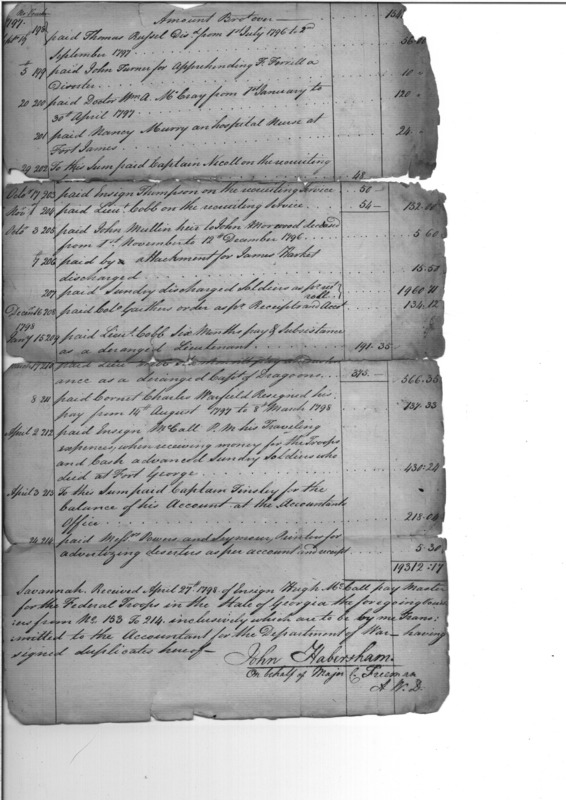 Amount Brot over
1797.
198 paid Thomas Russel Dis. from 1st July 1796 to 2nd
September 1797
5 199 paid John Turner for Apprehending F. Ferrill a
Diserter 10
20 200 paid Doctor Wm A. McCray from 1st January to 120
30th April 1797
201 paid Nancy Murry an hospital Nurse at 24
Fort James
29 202 To this Sum paid Captain Nicoll on the recruiting 48
Octor 17 203 paid Ensign Thompson on the recruiting Service 50
Novr 204 paid Lieut Cobb on the recruiting Service 54 152.00
Octo 3 205 paid John Mullin heir to John Norwood deceased
from 1st November to 12th December 1796 5 60
206 paid by attachment for James Harket
discharged 15.50
207 paid Sundry discharged Soldiers as pr
roll 1960
Decemr 16 208 paid Colo Gaithers order as pr Receipts and Acct 134.12
1798
Jany 15 209 paid Lieut Cobb Six Months pay & Subsistence
as a deranged Lieutenant 191.35
210 paid Lieu
ance as a deranged Capt of Dragoons 375. 566.35
8 211 paid Cornet Charles Warfield Resigned his
pay from 14th August 1797 to 8th March 1798 137.33
April 2 212 paid Ensign McCall P.M his Traveling
expences, when receiving money for the Troops
and Cash advanced Sunday Soldiers who
died at Fort George 430.24
April 3 213 To this Sum paid Captain Tinsley for the
balance of his Account at the Accountants
Office 218.04
24 214 paid Messrs Powers and Seymour Printers for
advertizing deserters as per account and receipt 5.30
19312.17
Savannah Received April 27th 1798 of Ensign Hugh McCall pay Master
for the Federal Troops in the State of Georgia the foregoing
from No. 133 To 214. inclusively which are to be by me Trans:
mitted to the Accountant for the Department of War having
signed duplicates hereof
John Habersham.
On behalf of Major C. Freeman
A. W. D.